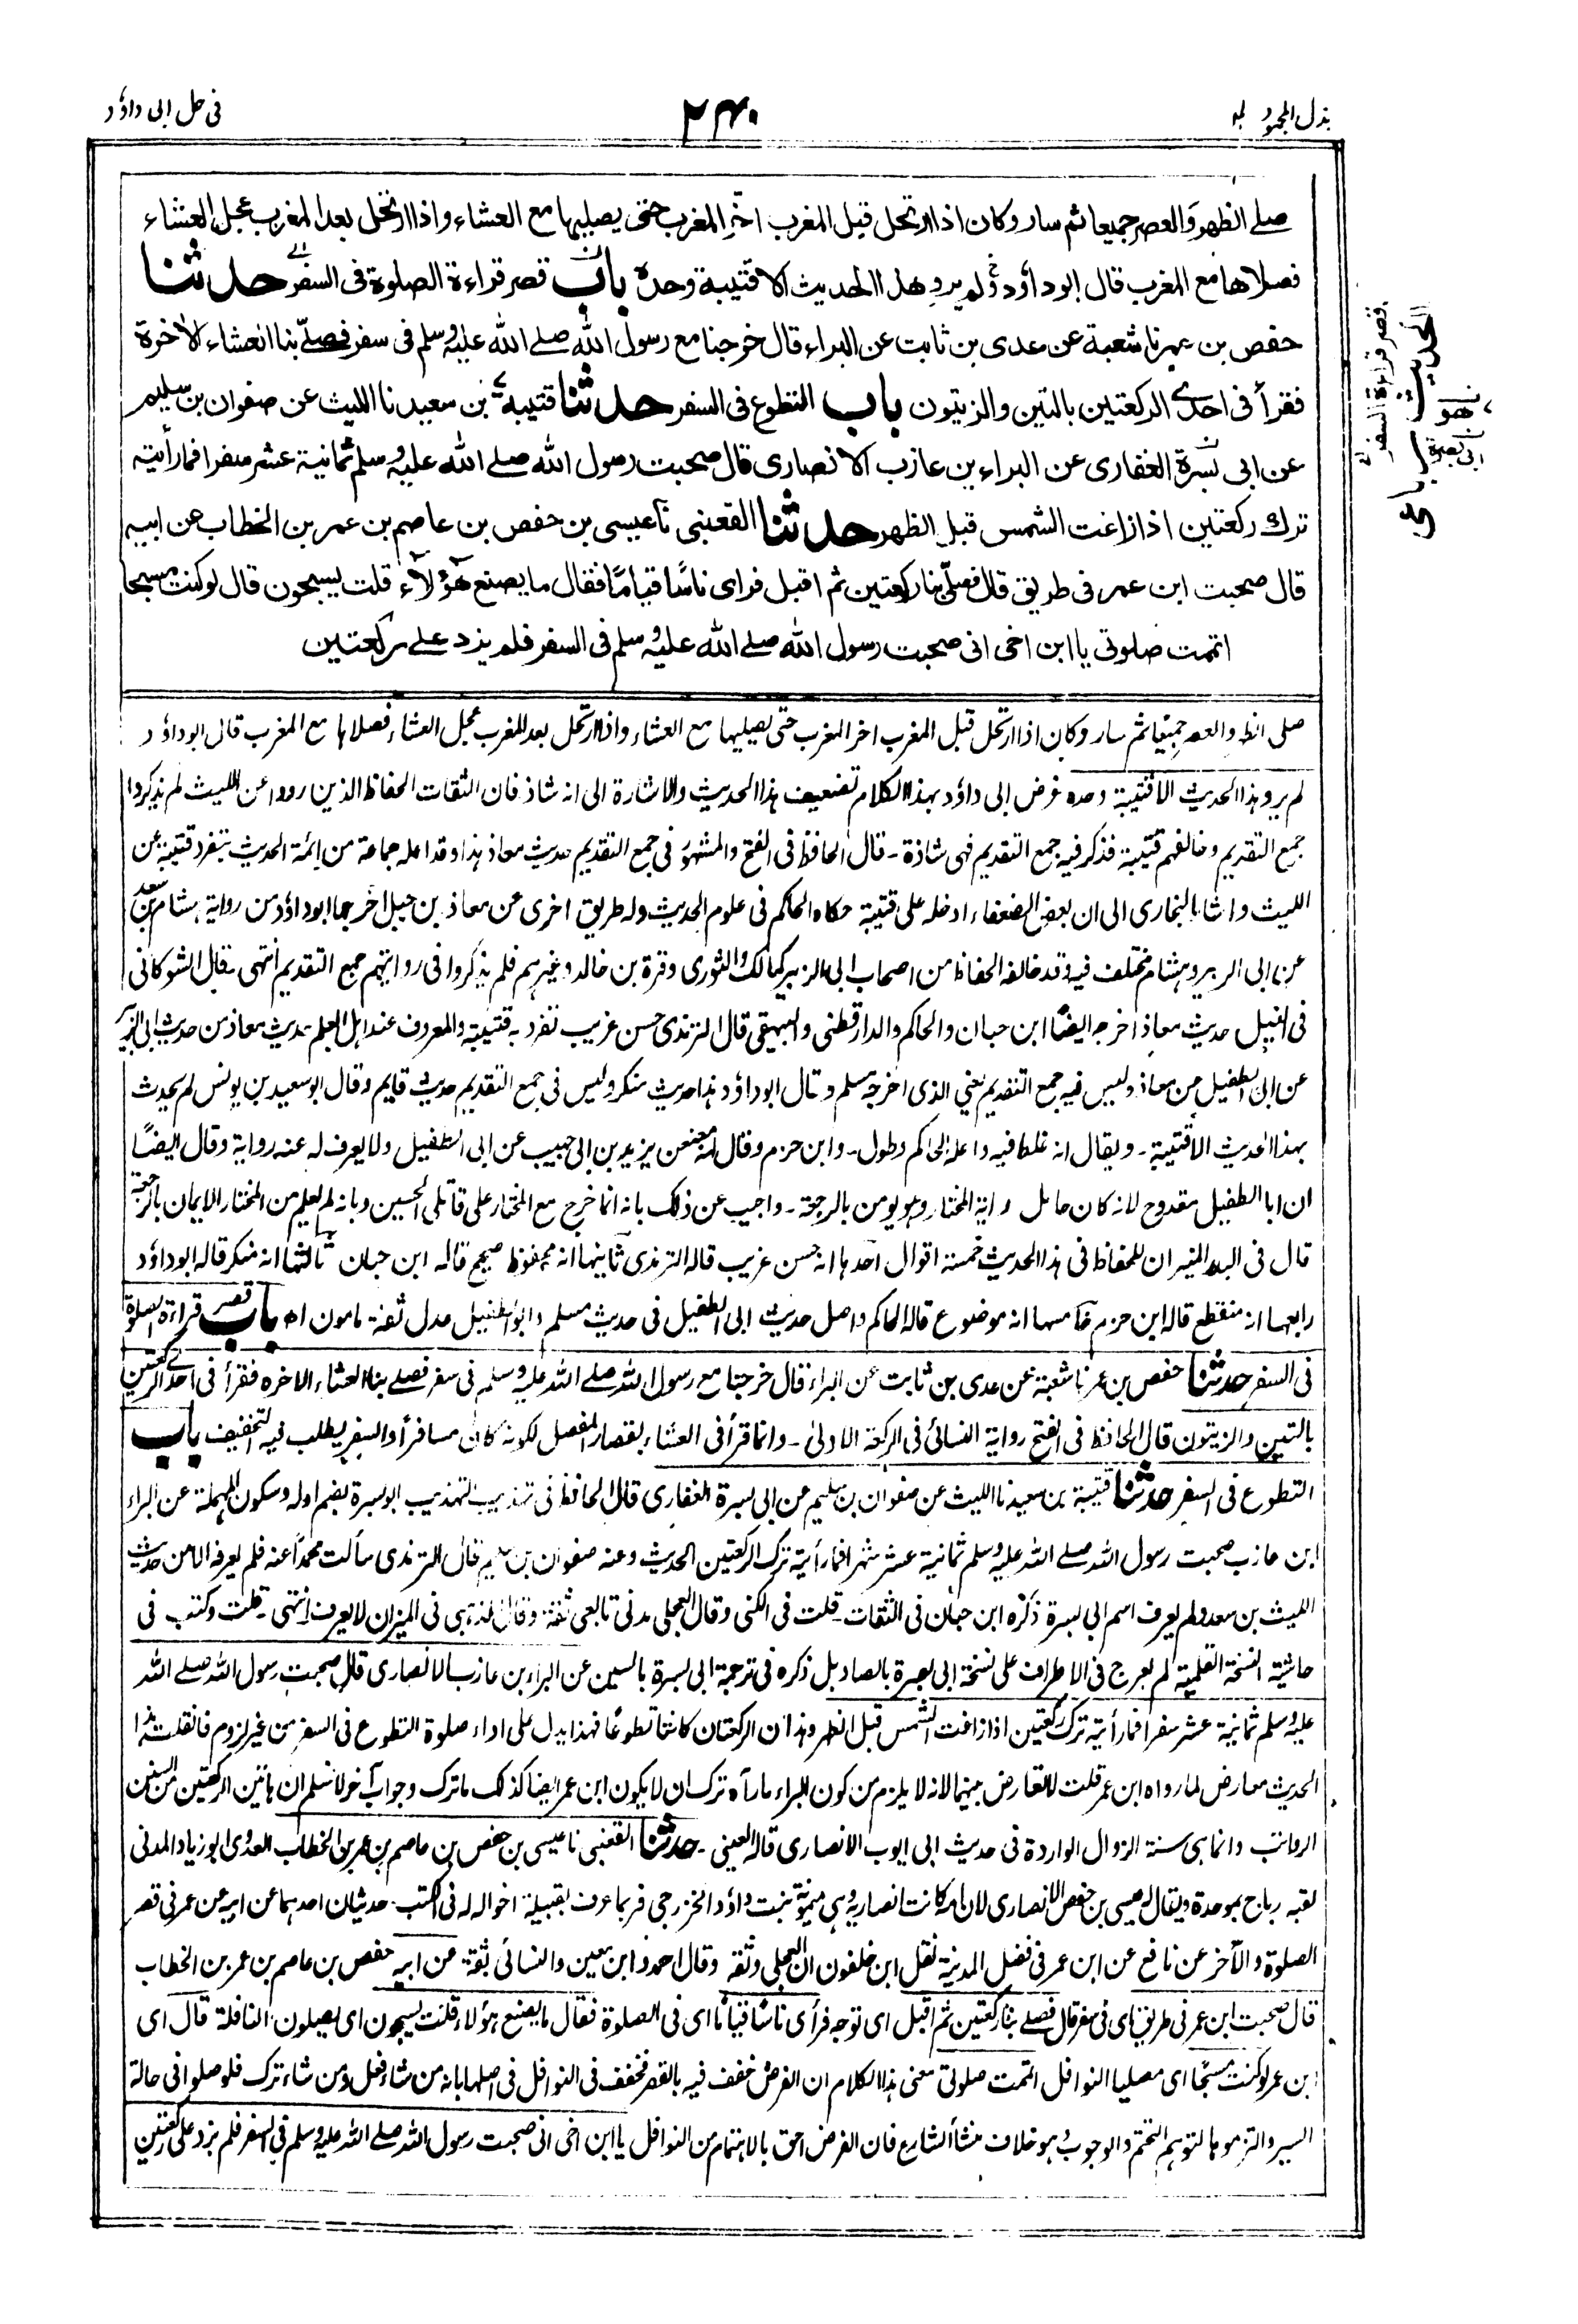 بذل المجهود
٢٤٠
فى حل ابى داؤد
صلے الظهر والعصر جميعا ثم سار وكان اذا ارتحل قبل المغرب اخر المغرب حتى يصليها مع العشاء واذا ارتحل بعد المغرب عجل العشاء
فصلاها مع المغرب قال ابو داؤد ولم يرو هذا الحديث الا قتيبة وحده باب قصر قراءة الصلوة فى السفر حدثنا
حفص بن عمر نا شعبة عن عدى بن ثابت عن البراء قال خرجنا مع رسول الله صلے الله عليه وسلم فى سفر فصلى بنا العشاء الاخرة
فقرأ فى احدى الركعتين بالتين والزيتون باب التطوع فى السفر حدثنا قتيبة بن سعيد نا الليث عن صفوان بن سليم
عن ابى بسرة الغفارى عن البراء بن عازب الانصارى قال صحبت رسول الله صلے الله عليه وسلم ثمانية عشر سفرا فما رأيته
ترك ركعتين اذا زاغت الشمس قبل الظهر حدثنا القعنبى نا عيسى بن حفص بن عاصم بن عمر بن الخطاب عن ابيه
قال صحبت ابن عمر فى طريق قال فصلى بنا ركعتين ثم اقبل فراى ناسًا قيامًا فقال ما يصنع هؤلاء قلت يسبحون قال لو كنت مسبحا
اتممت صلوتى يا ابن اخى انى صحبت رسول الله صلے الله عليه وسلم فى السفر فلم يزد علے ركعتين
قصر قراءة السفر
الحديث
ابى بصرة
صلى الظهر والعصر جميعًا ثم سار وكان اذا ارتحل قبل المغرب اخر المغرب حتى يصليها مع العشاء واذا ارتحل بعد المغرب عجل العشاء فصلاها مع المغرب قال ابو داؤد
لم يرو هذا الحديث الا قتيبة وحده غرض ابى داؤد بهذا الكلام تضعيف هذا الحديث والاشارة الى انه شاذ فان الثقات الحفاظ الذين رووا عن الليث لم يذكروا
جمع التقديم وخالفهم قتيبة فذكر فيه جمع التقديم فهى شاذة ۔ قال الحافظ فى الفتح والمشهور فى جمع التقديم حديث معاذ هذا وقد اعله جماعة من ائمة الحديث بتفرد قتيبة عن
الليث واشار البخارى الى ان بعض الضعفاء ادخله على قتيبة حكاه الحاكم فى علوم الحديث وله طريق اخرى عن معاذ بن جبل اخرجها ابو داؤد من رواية هشام بن سعد
عن ابى الزبير وهشام مختلف فيه وقد خالفه الحفاظ من اصحاب ابى الزبير كمالك والثورى وقرة بن خالد وغيرهم فلم يذكروا فى روايتهم جمع التقديم انتهى ۔ قال الشوكانى
فى النيل حديث معاذ اخرجه ايضًا ابن حبان والحاكم والدارقطنى والبيهقى قال الترمذى حسن غريب تفرد به قتيبة والمعروف عند اهل العلم حديث معاذ من حديث ابى الزبير
عن ابى الطفيل عن معاذ وليس فيه جمع التقديم يعنى الذى اخرجه مسلم وقال ابو داؤد هذا حديث منكر وليس فى جمع التقديم حديث قايم وقال ابو سعيد بن يونس لم يحدث
بهذا الحديث الا قتيبة ۔ ويقال انه غلط فيه واعله الحاكم وطول ۔ وابن حزم وقال انه معنعن يزيد بن ابى حبيب عن ابى الطفيل ولا يعرف له عنه رواية وقال ايضًا
ان ابا الطفيل مقدوح لانه كان حامل راية المختار وهو يومن بالرجعة ۔ واجيب عن ذلك بانه انما خرج مع المختار على قاتلى الحسين وبانه لم يعلم من المختار الايمان بالرجعة
قال فى البدر المنير ان للحفاظ فى هذا الحديث خمسة اقوال احدها انه حسن غريب قاله الترمذى ثانيها انه محفوظ صحيح قاله ابن حبان ثالثها انه منكر قاله ابو داؤد
رابعها انه منقطع قاله ابن حزم خامسها انه موضوع قاله الحاكم واصل حديث ابى الطفيل فى حديث مسلم وابو الطفيل عدل ثقة مامون اه باب قصر قراءة الصلوة
فى السفر حدثنا حفص بن عمر نا شعبة عن عدى بن ثابت عن البراء قال خرجنا مع رسول الله صلے الله عليه وسلم فى سفر فصلے بنا العشاء الاخرة فقرأ فى احدى الركعتين
بالتين والزيتون قال الحافظ فى الفتح رواية النسائى فى الركعة الاولى ۔ وانما قرأ فى العشاء بقصار المفصل لكونه كان مسافرا والسفر يطلب فيه التخفيف باب
التطوع فى السفر حدثنا قتيبة بن سعيد نا الليث عن صفوان بن سليم عن ابى بسرة الغفارى قال الحافظ فى تهذيب التهذيب ابو بسرة بضم اوله وسكون المهملة عن البراء
ابن عازب صحبت رسول الله صلے الله عليه وسلم ثمانية عشر شهرا فما رأيته ترك الركعتين الحديث وعنه صفوان بن سليم قال الترمذى سألت محمدًا عنه فلم يعرفه الا من حديث
الليث بن سعد ولم يعرف اسم ابى بسرة ذكره ابن حبان فى الثقات ۔ قلت فى الكنى وقال العجلى مدنى تابعى ثقة وقال الذهبى فى الميزان لا يعرف انتهى ۔ قلت وكتب فى
حاشية النسخة القلمية لم يعرج فى الاطراف على نسخة ابى بصرة بالصاد بل ذكره فى ترجمة ابى بسرة بالسين عن البراء بن عازب الانصارى قال صحبت رسول الله صلے الله
عليه وسلم ثمانية عشر سفرا فما رأيته ترك ركعتين اذا زاغت الشمس قبل الظهر وهذان الركعتان كانتا تطوعًا فهذا يدل على اداء صلوة التطوع فى السفر من غير لزوم فان قلت هذا
الحديث معارض لما رواه ابن عمر قلت لا تعارض بينهما لانه لا يلزم من كون البراء ما رآه ترك ان لا يكون ابن عمر ايضا كذلك ما ترك وجواب آخر لا نسلم ان هاتين الركعتين من السنن
الرواتب وانما هى سنة الزوال الواردة فى حديث ابى ايوب الانصارى قاله العينى ۔ حدثنا القعنبى نا عيسى بن حفص بن عاصم بن عمر بن الخطاب العدوى ابو زياد المدنى
لقبه رباح بموحدة ويقال له عيسى بن حفص الانصارى لان امه كانت انصارية وهى ميمونة بنت داؤد الخزرجى فربما عرف بقبيلة اخواله له فى الكتب حديثان احدهما عن ابيه عن عمر فى قصر
الصلوة والآخر عن نافع عن ابن عمر فى فضل المدينة نقل ابن خلفون ان العجلى وثقه وقال احمد وابن معين والنسائى ثقة عن ابيه حفص بن عاصم بن عمر بن الخطاب
قال صحبت ابن عمر فى طريق اى فى سفر قال فصلے بنا ركعتين ثم اقبل اى توجه فرأى ناسًا قيامًا اى فى الصلوة فقال ما يصنع هؤلاء قلت يسبحون اى يصلون النافلة قال اى
ابن عمر لو كنت مسبحًا اى مصليا النوافل اتممت صلوتى معنى هذا الكلام ان الفرض خفف فيه بالقصر فخفف فى النوافل فى اصلها بانه من شاء فعل ومن شاء ترك فلو صلوا فى حالة
السير والتزموها لتوهم التحتم والوجوب وهو خلاف منشأ الشارع فان الفرض احق بالاهتمام من النوافل يا ابن اخى انى صحبت رسول الله صلے الله عليه وسلم فى السفر فلم يزد على ركعتين